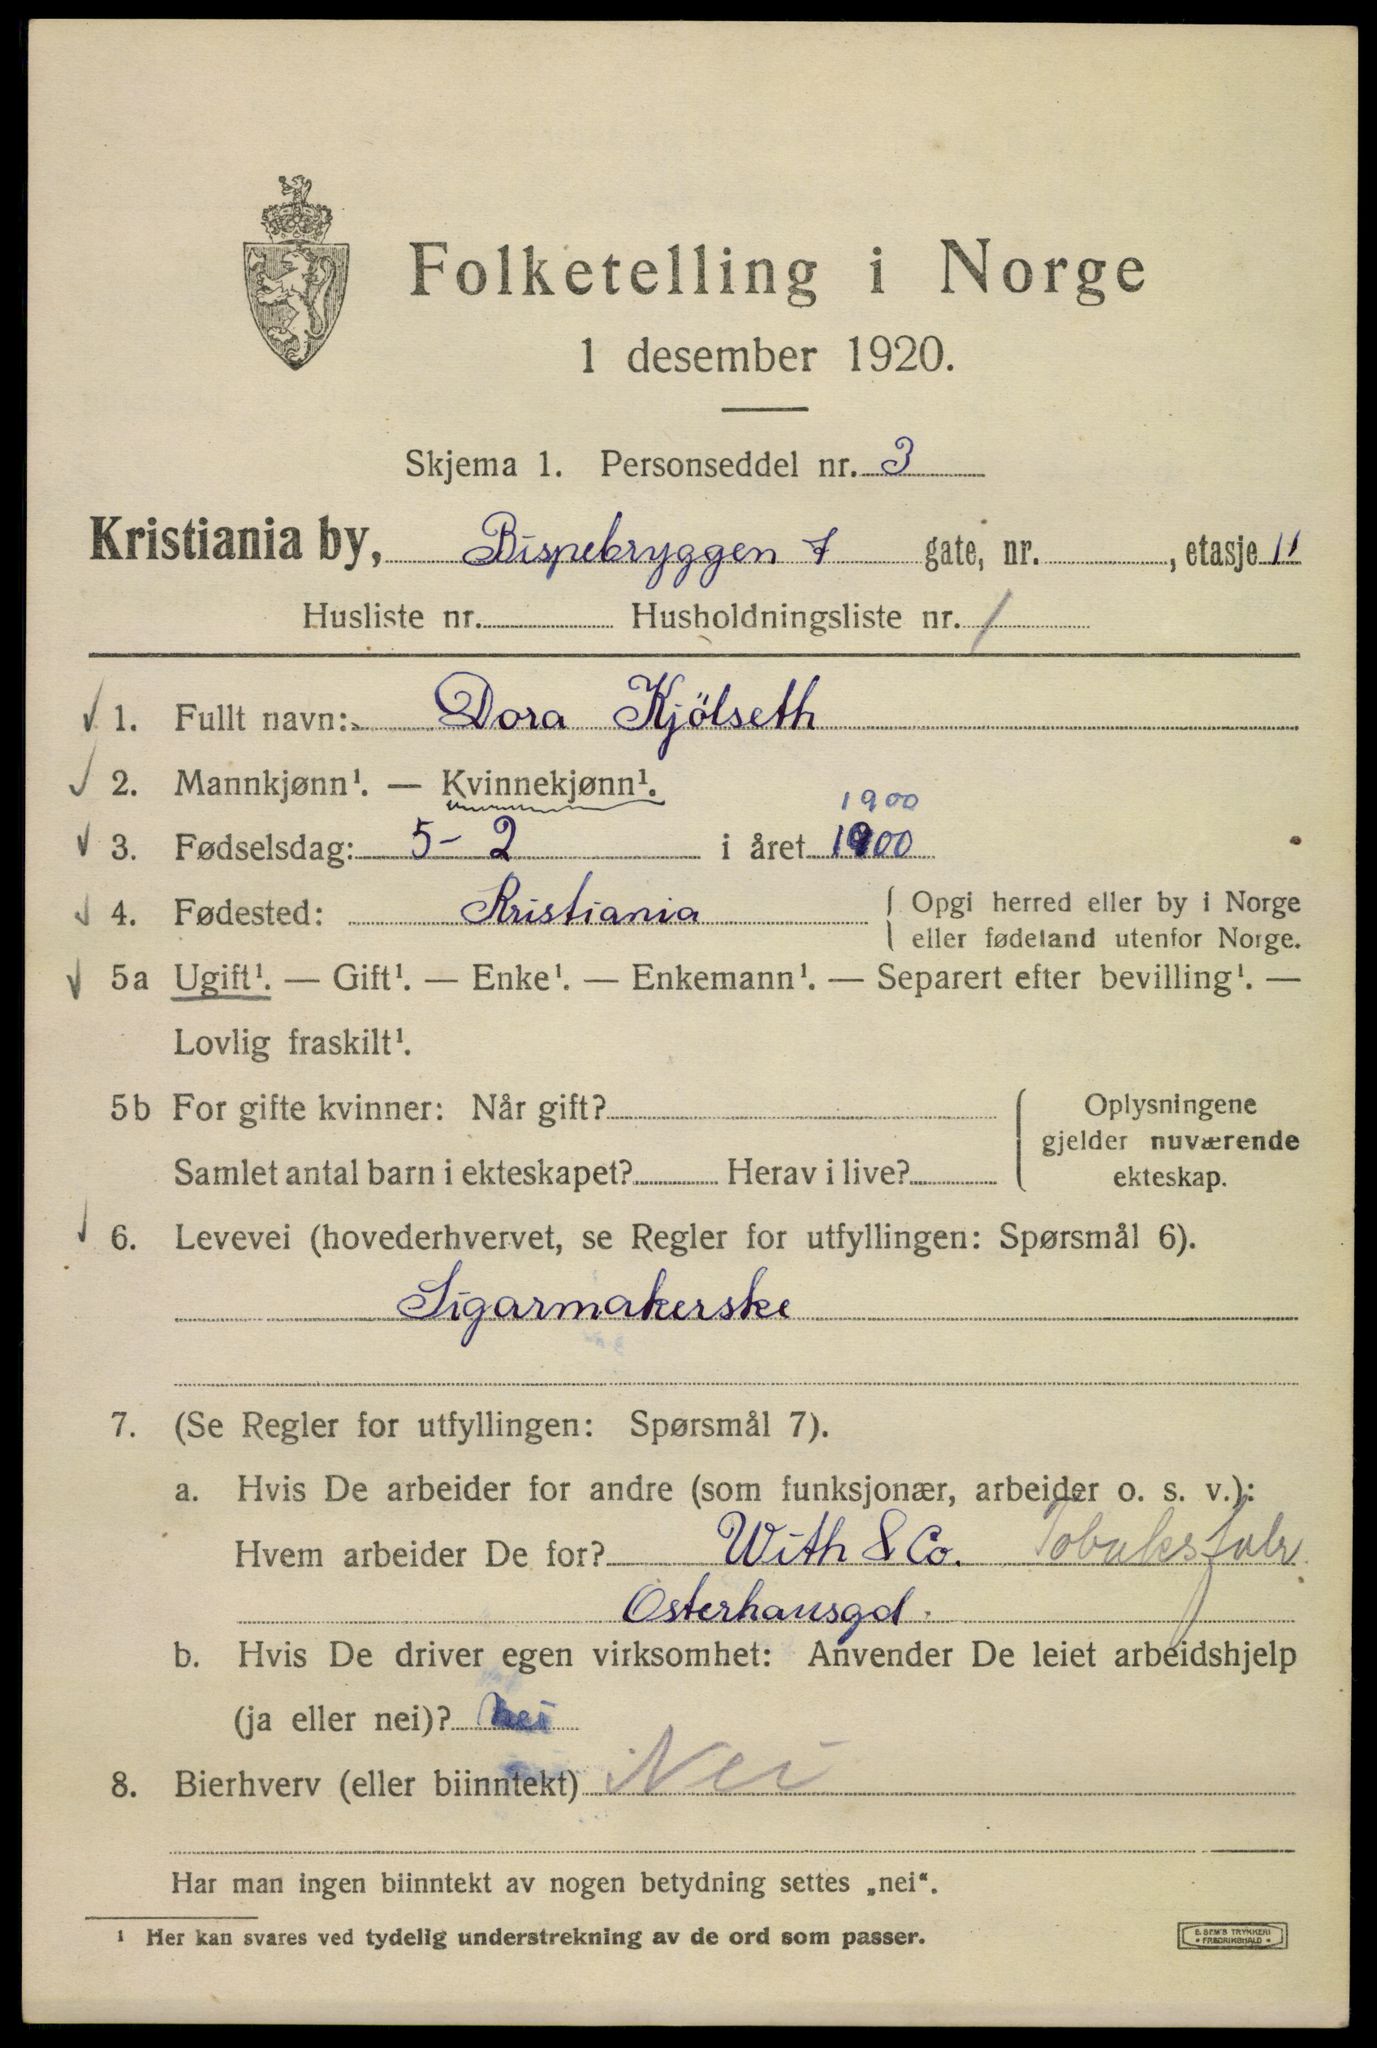 Folketelling i Norge
1 desember 1920.
Skjema 1. Personseddel nr. 3
Kristiania by, Bispebryggen 7 gate, nr. , etasje 11
Husliste nr. Husholdningsliste nr. 1
1. Fullt navn: Dora Kjölseth
2. Mannkjønn¹. — Kvinnekjønn¹.
1900
3. Fødselsdag: 5-2 i året 1900
4. Fødested: Kristiania { Opgi herred eller by i Norge
eller fødeland utenfor Norge.
5a Ugift¹. — Gift¹. — Enke¹. — Enkemann¹. — Separert efter bevilling¹. —
Lovlig fraskilt¹.
5b For gifte kvinner: Når gift? { Oplysningene
gjelder nuværende
Samlet antal barn i ekteskapet? Herav i live? ekteskap.
6. Levevei (hovederhvervet, se Regler for utfyllingen: Spørsmål 6).
Sigarmakerske
7. (Se Regler for utfyllingen: Spørsmål 7).
a. Hvis De arbeider for andre (som funksjonær, arbeider o. s. v.):
Hvem arbeider De for? With & Co. Tobaksfabr
Osterhausgd.
b. Hvis De driver egen virksomhet: Anvender De leiet arbeidshjelp
(ja eller nei)? nei
8. Bierhverv (eller biinntekt) Nei
Har man ingen biinntekt av nogen betydning settes „nei“.
¹ Her kan svares ved tydelig understrekning av de ord som passer.
E. SEM'S TRYKKERI
• FREDRIKSHALD •